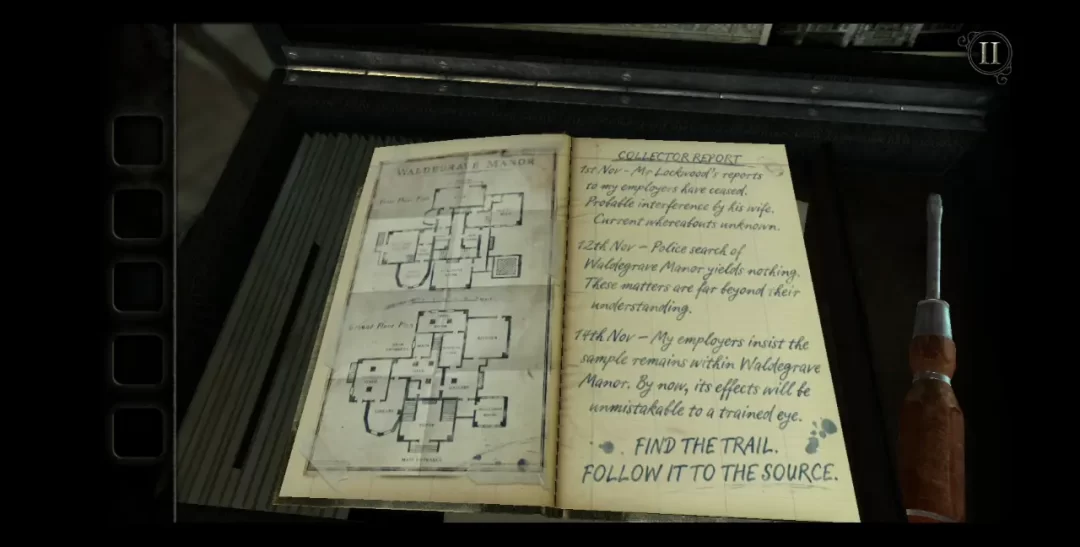 II
WALDEGRAVE MANOR
COLLECTOR REPORT
1st Nov - Mr Lockwood's reports
to my employers have ceased.
Probable interference by his wife.
Current whereabouts unknown.
12th Nov – Police search of
Waldegrave Manor yields nothing.
These matters are far beyond their
understanding.
14th Nov – My employers insist the
sample remains within Waldegrave
Manor. By now, its effects will be
unmistakable to a trained eye.
FIND THE TRAIL.
FOLLOW IT TO THE SOURCE.